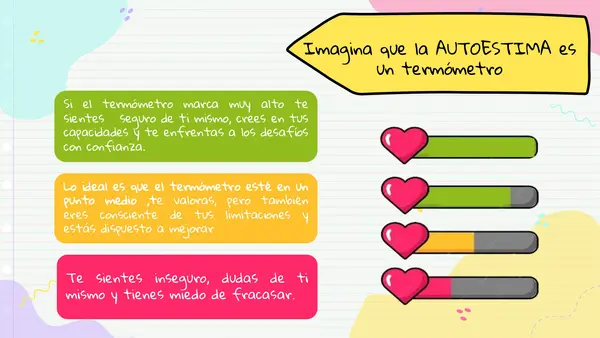 Imagina que la AUTOESTIMA es
un termómetro
Si el termómetro marca muy alto te
sientes seguro de ti mismo, crees en tus
capacidades y te enfrentas a los desafíos
con confianza.
Lo ideal es que el termómetro esté en un
punto medio ,te valoras, pero también
eres consciente de tus limitaciones y
estás dispuesto a mejorar
Te sientes inseguro, dudas de ti
mismo y tienes miedo de fracasar.